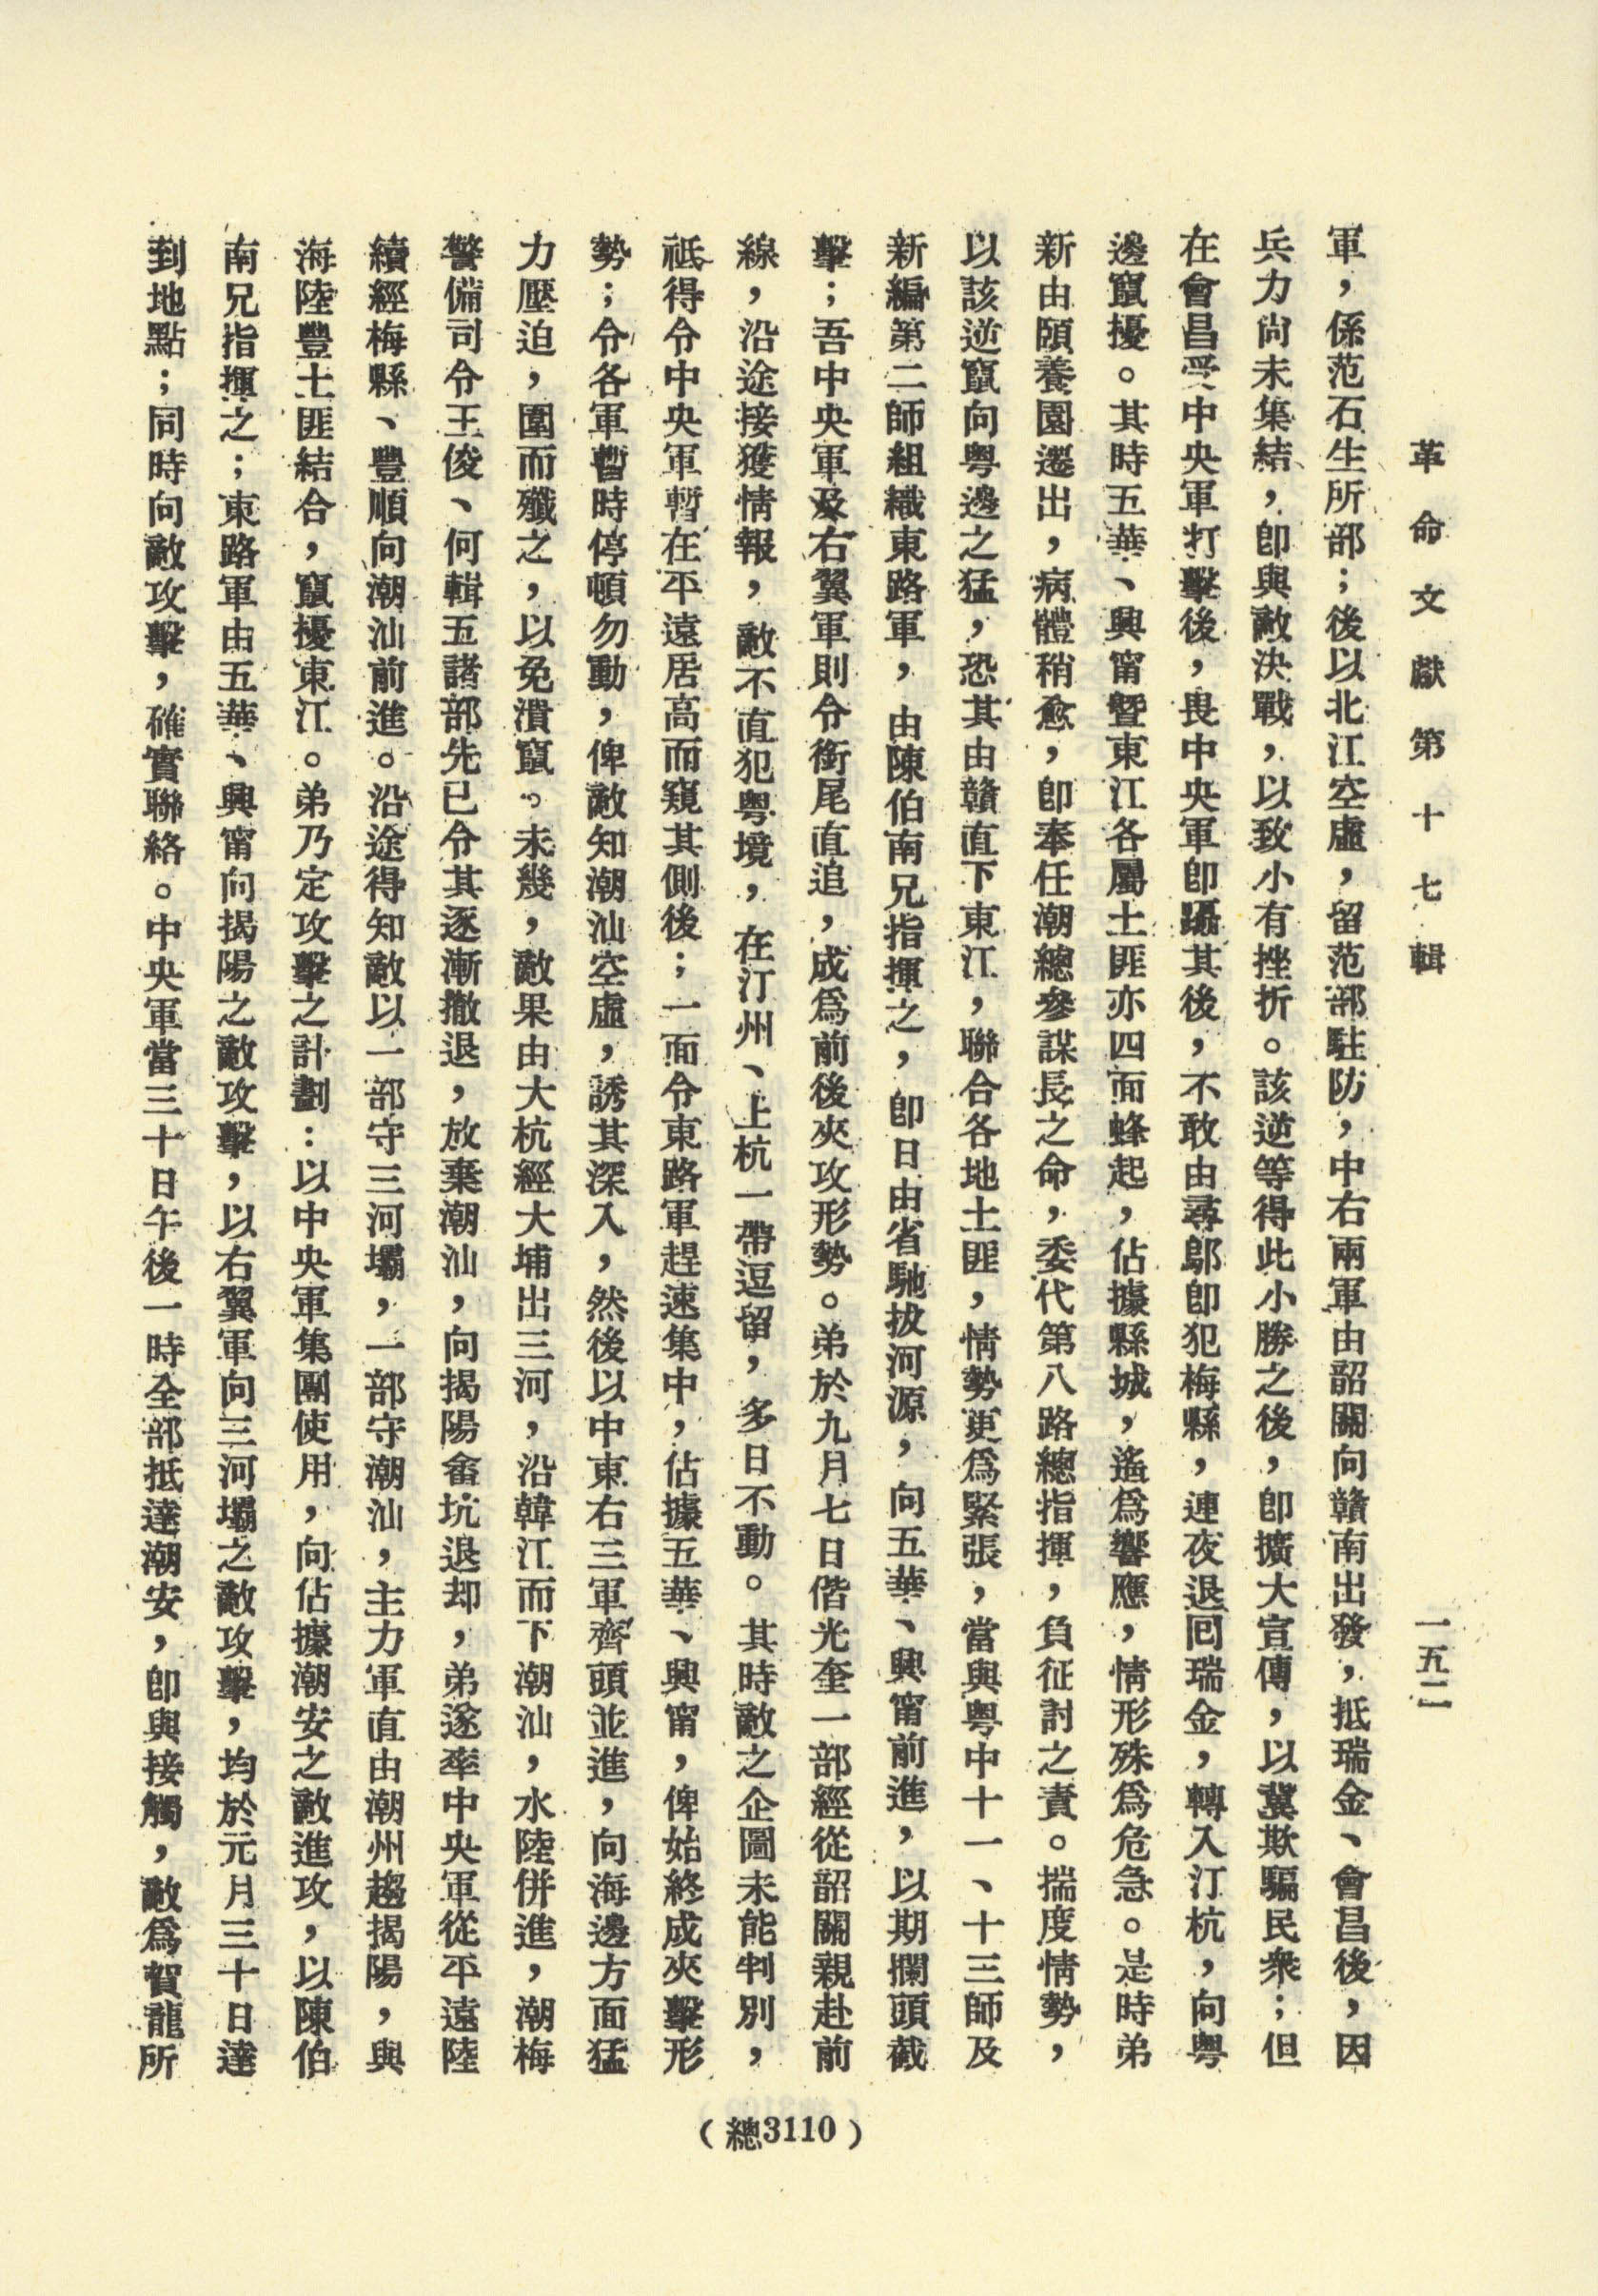 革命文獻第十七輯
一五二
軍，係范石生所部；後以北江空虛，留范部駐防，中右兩軍由韶關向贛南出發，抵瑞金、會昌後，因
兵力尚未集結，卽與敵決戰，以致小有挫折。該逆等得此小勝之後，卽擴大宣傳，以冀欺騙民衆；但
在會昌受中央軍打擊後，畏中央軍卽躡其後，不敢由尋鄔卽犯梅縣，連夜退回瑞金，轉入汀杭，向粤
邊竄擾。其時五華、興甯曁東江各屬土匪亦四面蜂起，佔據縣城，遙爲響應，情形殊爲危急。是時弟
新由頤養園遷出，病體稍愈，卽奉任潮總參謀長之命，委代第八路總指揮，負征討之責。揣度情勢，
以該逆竄向粤邊之猛，恐其由贛直下東江，聯合各地土匪，情勢更爲緊張，當與粤中十一、十三師及
新編第二師組織東路軍，由陳伯南兄指揮之，卽日由省馳拔河源，向五華、興甯前進，以期攔頭截
擊；吾中央軍及右翼軍則令銜尾直追，成爲前後夾攻形勢。弟於九月七日偕光奎一部經從韶關親赴前
線，沿途接獲情報，敵不直犯粤境，在汀州、上杭一帶逗留，多日不動。其時敵之企圖未能判別，
祇得令中央軍暫在平遠居高而窺其側後；一面令東路軍趕速集中，佔據五華、興甯，俾始終成夾擊形
勢；令各軍暫時停頓勿動，俾敵知潮汕空虛，誘其深入，然後以中東右三軍齊頭並進，向海邊方面猛
力壓迫，圍而殲之，以免潰竄。未幾，敵果由大杭經大埔出三河，沿韓江而下潮汕，水陸併進，潮梅
警備司令王俊、何輯五諸部先已令其逐漸撤退，放棄潮汕，向揭陽畬坑退却，弟遂率中央軍從平遠陸
續經梅縣、豐順向潮汕前進。沿途得知敵以一部守三河壩，一部守潮汕，主力軍直由潮州趨揭陽，與
海陸豐土匪結合，竄擾東江。弟乃定攻擊之計劃：以中央軍集團使用，向佔據潮安之敵進攻，以陳伯
南兄指揮之；東路軍由五華、興甯向揭陽之敵攻擊，以右翼軍向三河壩之敵攻擊，均於元月三十日達
到地點；同時向敵攻擊，確實聯絡。中央軍當三十日午後一時全部抵達潮安，卽與接觸，敵爲賀龍所
（總3110）